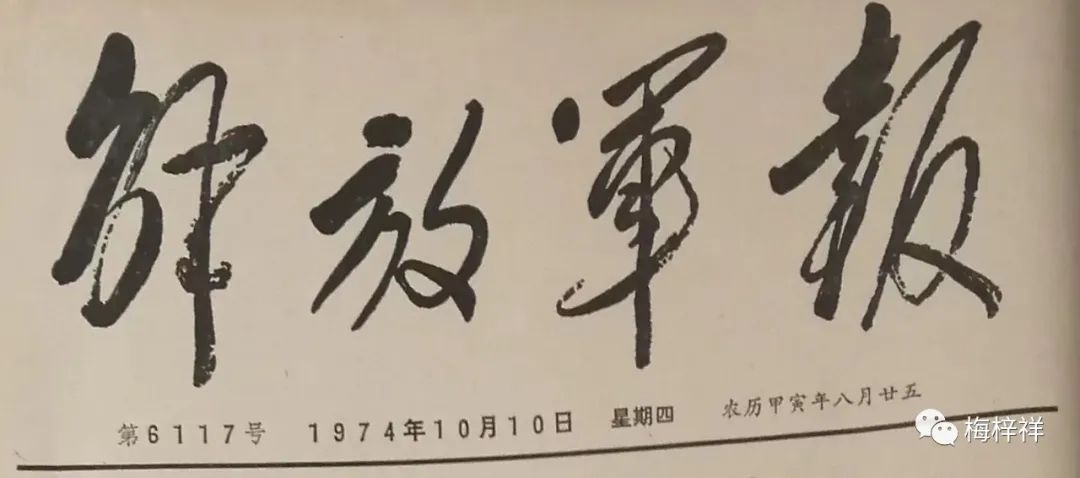 解放軍報
第6117号 1974年10月10日 星期四 农历甲寅年八月廿五
梅梓祥